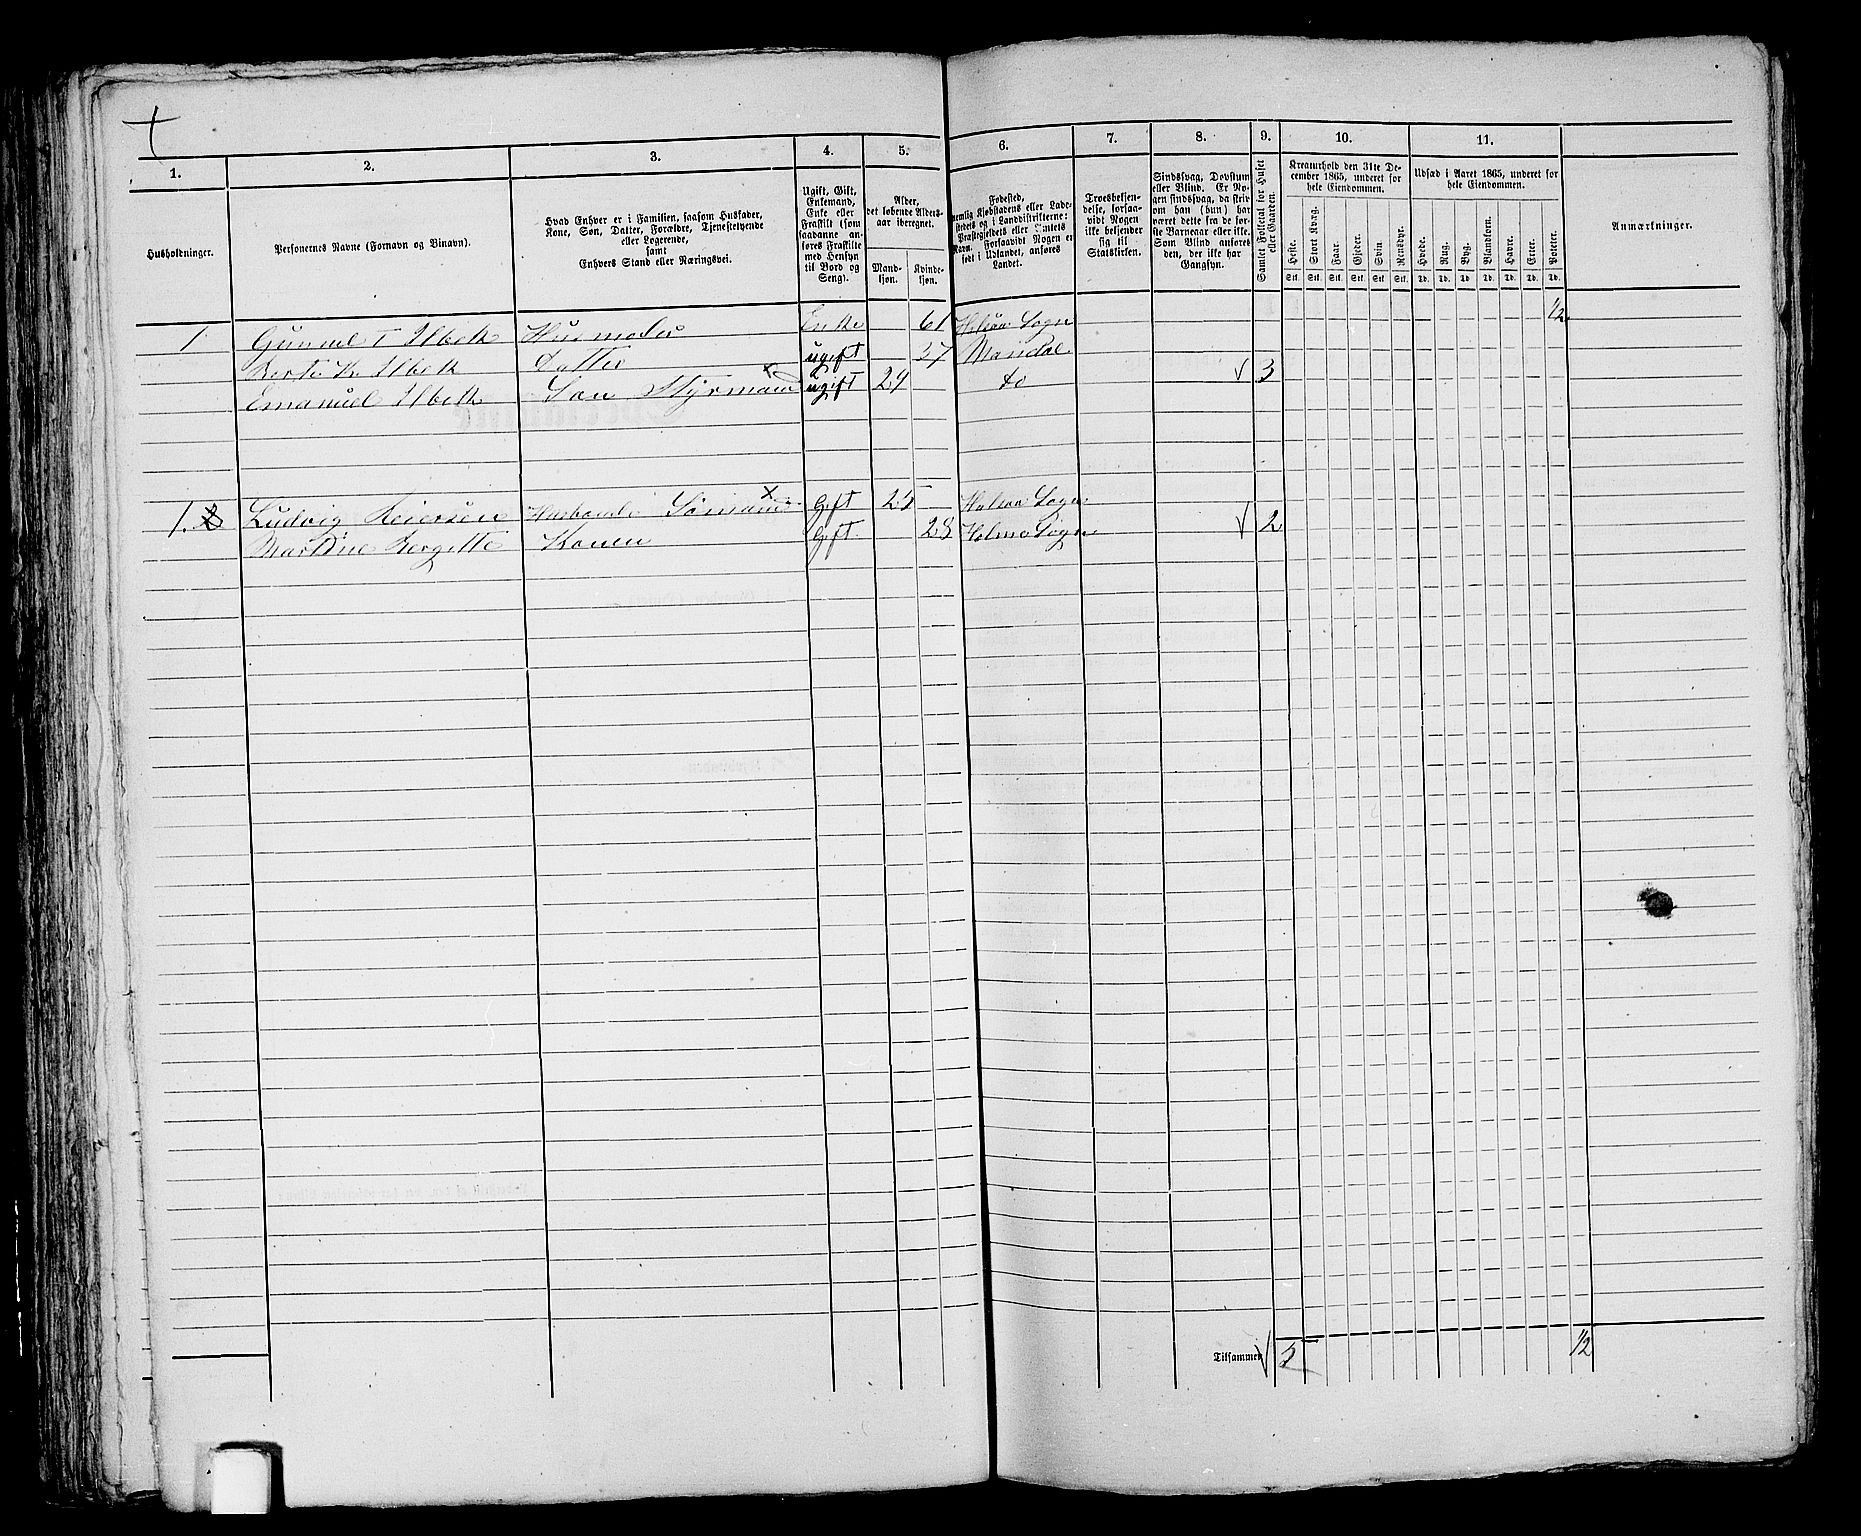 1. 2. 3. 4. 5. 6. 7. 8. 9. 10. 11.
Husholdninger.
Personernes Navne (Fornavn og Binavn).
Hvad Enhver er i Familien, saasom Husfader,
Kone, Søn, Datter, Forældre, Tjenestetyende
eller Logerende,
samt
Enhvers Stand eller Næringsvei.
Ugift, Gift,
Enkemand,
Enke eller
Fraskilt (som
saadanne an-
føres Fraskilte
med Hensyn
til Bord og
Seng).
Alder,
det løbende Alders-
aar iberegnet.
Mand-
kjøn.
Kvinde-
kjøn.
Fødested,
nemlig Kjøbstadens eller Lade-
stedets og i Landdistrikterne:
Præstegjeldets eller Amtets
Navn. Forsaavidt Nogen er
født i Udlandet, anføres
Landet.
Troesbekjen-
delse, forsaa-
vidt Nogen
ikke bekjender
sig til
Statskirken.
Sindssvag, Døvstum
eller Blind. Er No-
gen sindssvag, da skriv
om han (hun) har
været dette fra de før-
ste Barneaar eller ikke.
Som Blind anføres
den, der ikke har
Gangsyn.
Samlet Folketal for Huset
eller Gaarden.
Kreaturhold den 31te De-
cember 1865, underet for
hele Eiendommen.
Heste. Stort Kvæg. Faar. Gjeder. Svin. Rensdyr.
Stk. Stk. Stk. Stk. Stk. Stk.
Udsæd i Aaret 1865, underet for
hele Eiendommen.
Hvede. Rug. Byg. Blandkorn. Havre. Erter. Poteter.
Td. Td. Td. Td. Td. Td. Td.
Anmærkninger.
1. Gunnul T Ilbek Husmoder Enke 61 Sogn 1/2
K Ilbek Datter ugift 37 Mandal
Emanuel Ilbek Søn Styrmand ugift 24 do 3
1. 2 Ludvig Reiersen Sømand Gift 25 Sogn
Martine Bergitte Konen Gift 28 Holme Sogn 2
Tilsammen 5 1/2